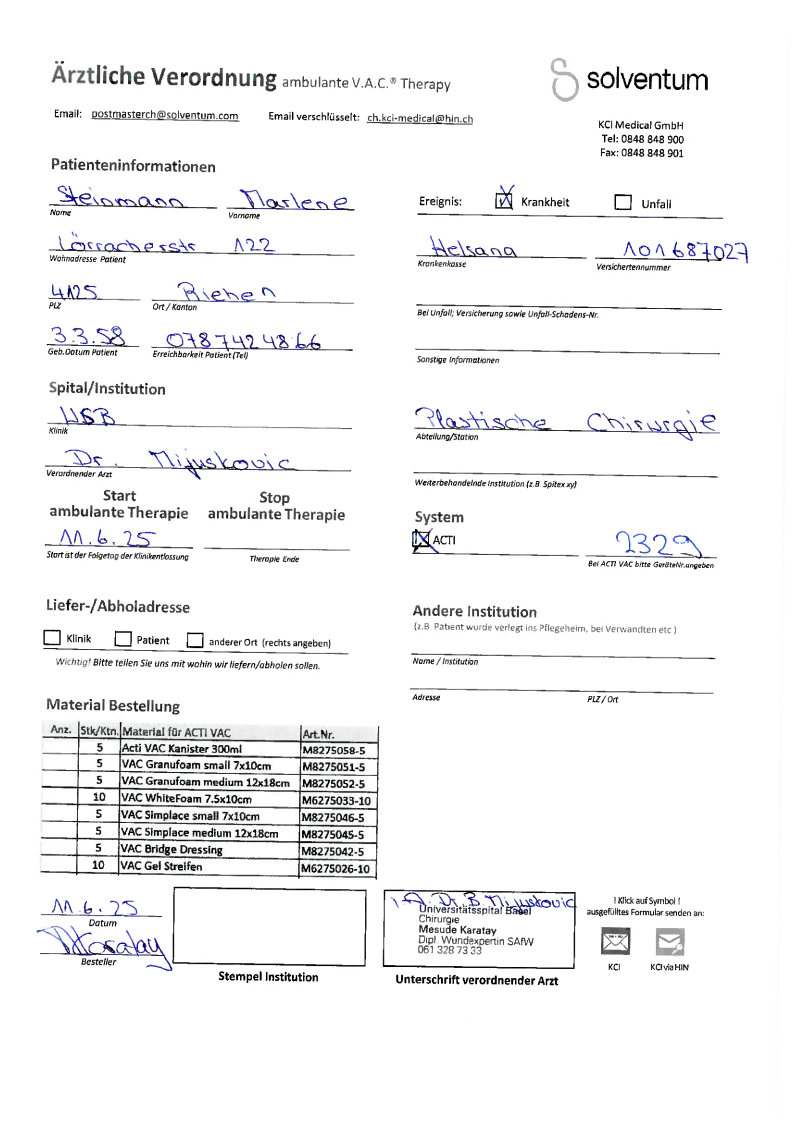 Ärztliche Verordnung ambulante V.A.C.® Therapy
solventum
Email: postmasterch@solventum.com Email verschlüsselt: ch.kci-medical@hin.ch
KCI Medical GmbH
Tel: 0848 848 900
Fax: 0848 848 901
Patienteninformationen
Steinmann Marlene
Name Vorname
Ereignis: Krankheit Unfall
Lörracherstr 122
Wohnadresse Patient
Helsana 101687027
Krankenkasse Versichertennummer
4125 Riehen
PLZ Ort / Kanton
Bei Unfall; Versicherung sowie Unfall-Schadens-Nr.
3.3.58 078 742 48 66
Geb.Datum Patient Erreichbarkeit Patient (Tel)
Sonstige Informationen
Spital/Institution
USB
Klinik
Plastische Chirurgie
Abteilung/Station
Dr. Mijuskovic
Verordnender Arzt
Weiterbehandelnde Institution (z.B. Spitex xy)
Start ambulante Therapie
Stop ambulante Therapie
11.6.25
Start ist der Folgetag der Klinikentlassung Therapie Ende
System
ACTI 2329
Bei ACTI VAC bitte GeräteNr.angeben
Liefer-/Abholadresse
Klinik Patient anderer Ort (rechts angeben)
Wichtig! Bitte teilen Sie uns mit wohin wir liefern/abholen sollen.
Andere Institution
(z.B. Patient wurde verlegt ins Pflegeheim, bei Verwandten etc )
Name / Institution
Adresse PLZ / Ort
Material Bestellung
Anz. Stk/Ktn. Material für ACTI VAC Art.Nr.
5 Acti VAC Kanister 300ml M8275058-5
5 VAC Granufoam small 7x10cm M8275051-5
5 VAC Granufoam medium 12x18cm M8275052-5
10 VAC WhiteFoam 7.5x10cm M6275033-10
5 VAC Simplace small 7x10cm M8275046-5
5 VAC Simplace medium 12x18cm M8275045-5
5 VAC Bridge Dressing M8275042-5
10 VAC Gel Streifen M6275026-10
11.6.25
Datum
Karatay
Besteller
Stempel Institution
i.A. Dr. B. Mijuskovic
Universitätsspital Basel
Chirurgie
Mesude Karatay
Dipl. Wundexpertin SAfW
061 328 73 33
Unterschrift verordnender Arzt
! Klick auf Symbol !
ausgefülltes Formular senden an:
KCI KCI via HIN